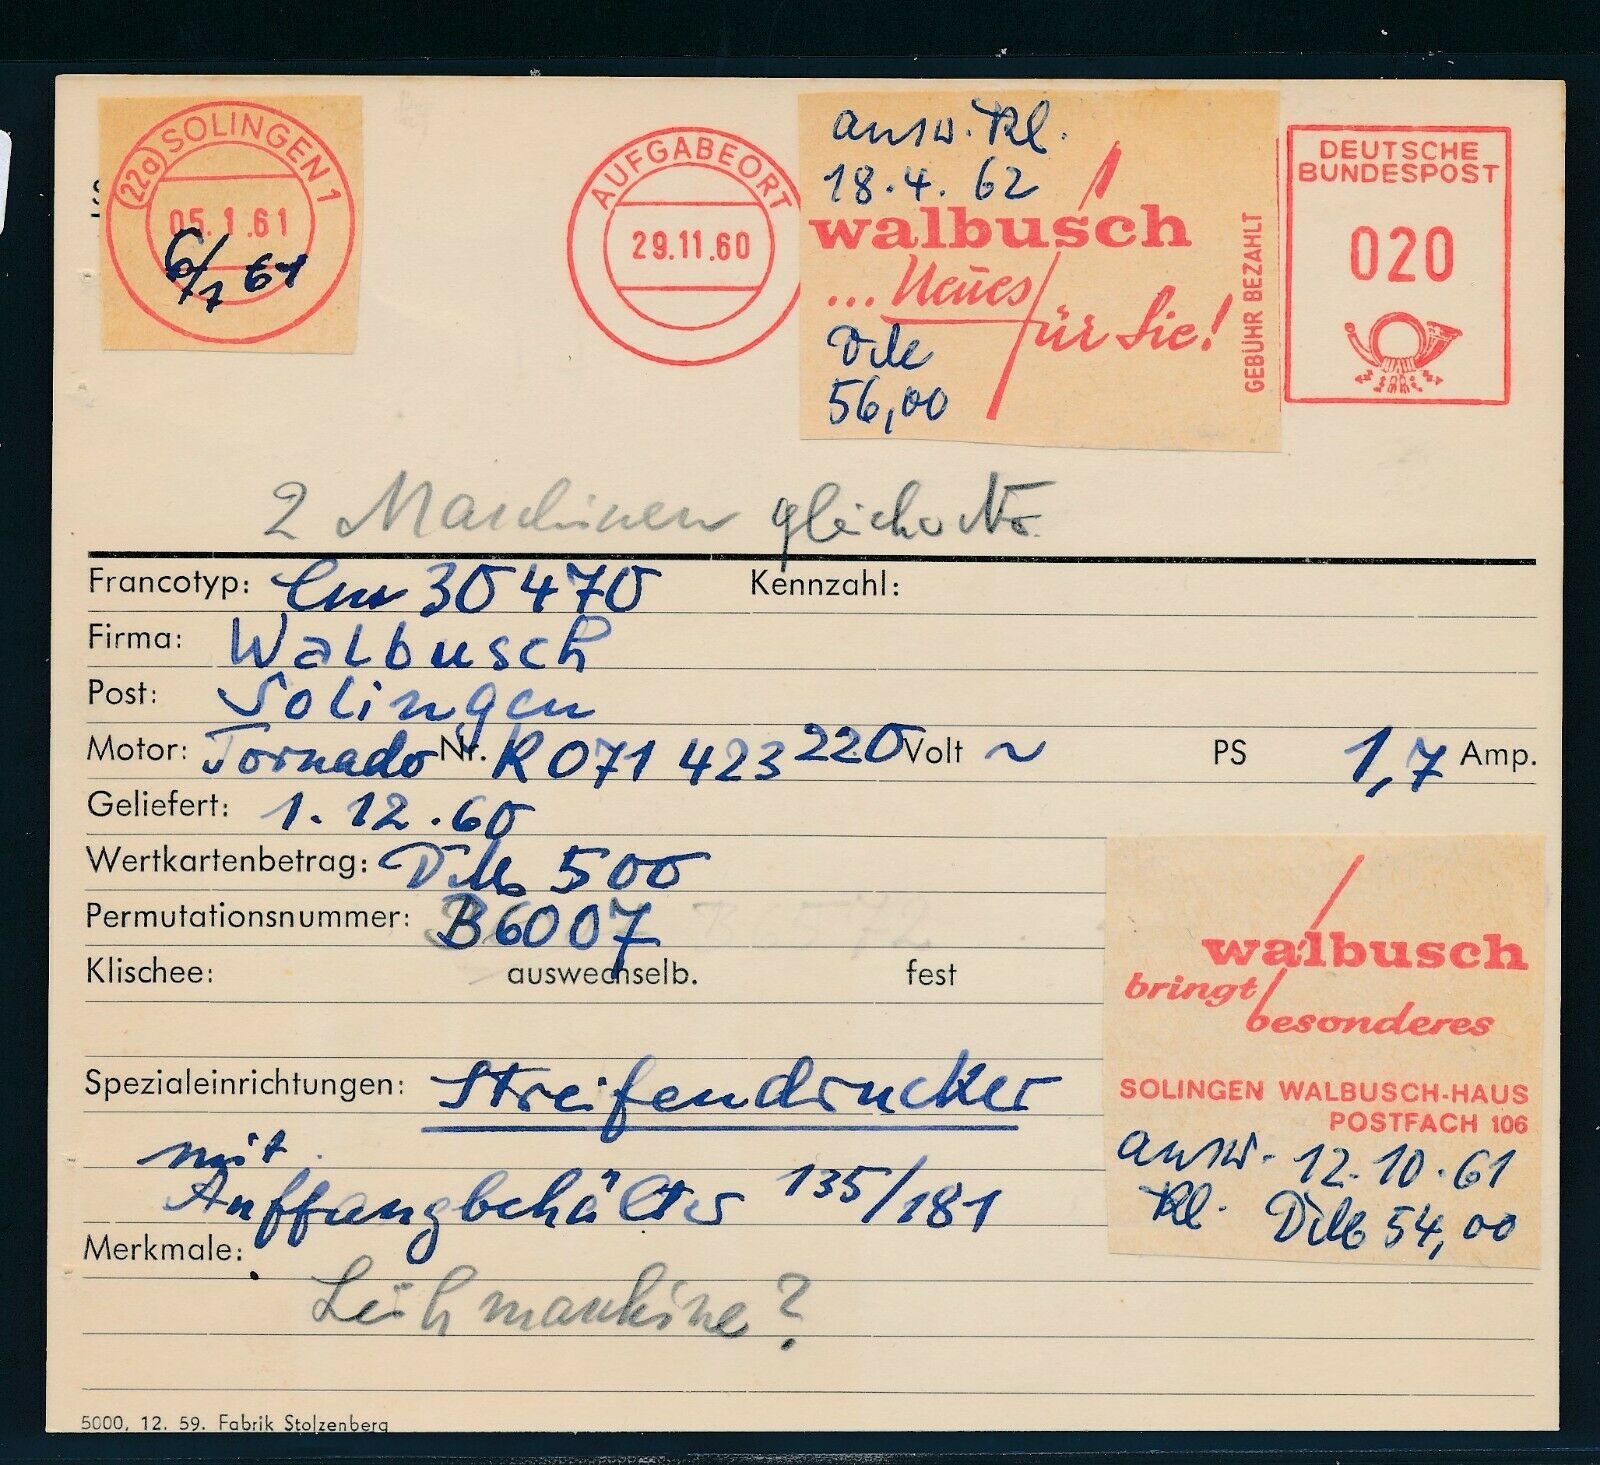 (22a) SOLINGEN 1
05.1.61
6/7 61
AUFGABEORT
29.11.60
ausw. Kl.
18.4.62
walbusch
... Neues für Sie!
DM
56,00
GEBÜHR BEZAHLT
DEUTSCHE
BUNDESPOST
020
2 Maschinen gleiche Nr.
Francotyp: Cm 30470 Kennzahl:
Firma: Walbusch
Post: Solingen
Motor: Tornado Nr. K071423 220 Volt ~ PS 1,7 Amp.
Geliefert: 1.12.60
Wertkartenbetrag: DM 500
Permutationsnummer: B6007
Klischee: auswechselb. fest
walbusch
bringt
besonderes
SOLINGEN WALBUSCH-HAUS
POSTFACH 106
ausw. 12.10.61
Kl. DM 54,00
Spezialeinrichtungen: Streifendrucker
mit
Auffangbehälter 135/181
Merkmale:
Leihmaschine?
5000, 12. 59. Fabrik Stolzenberg